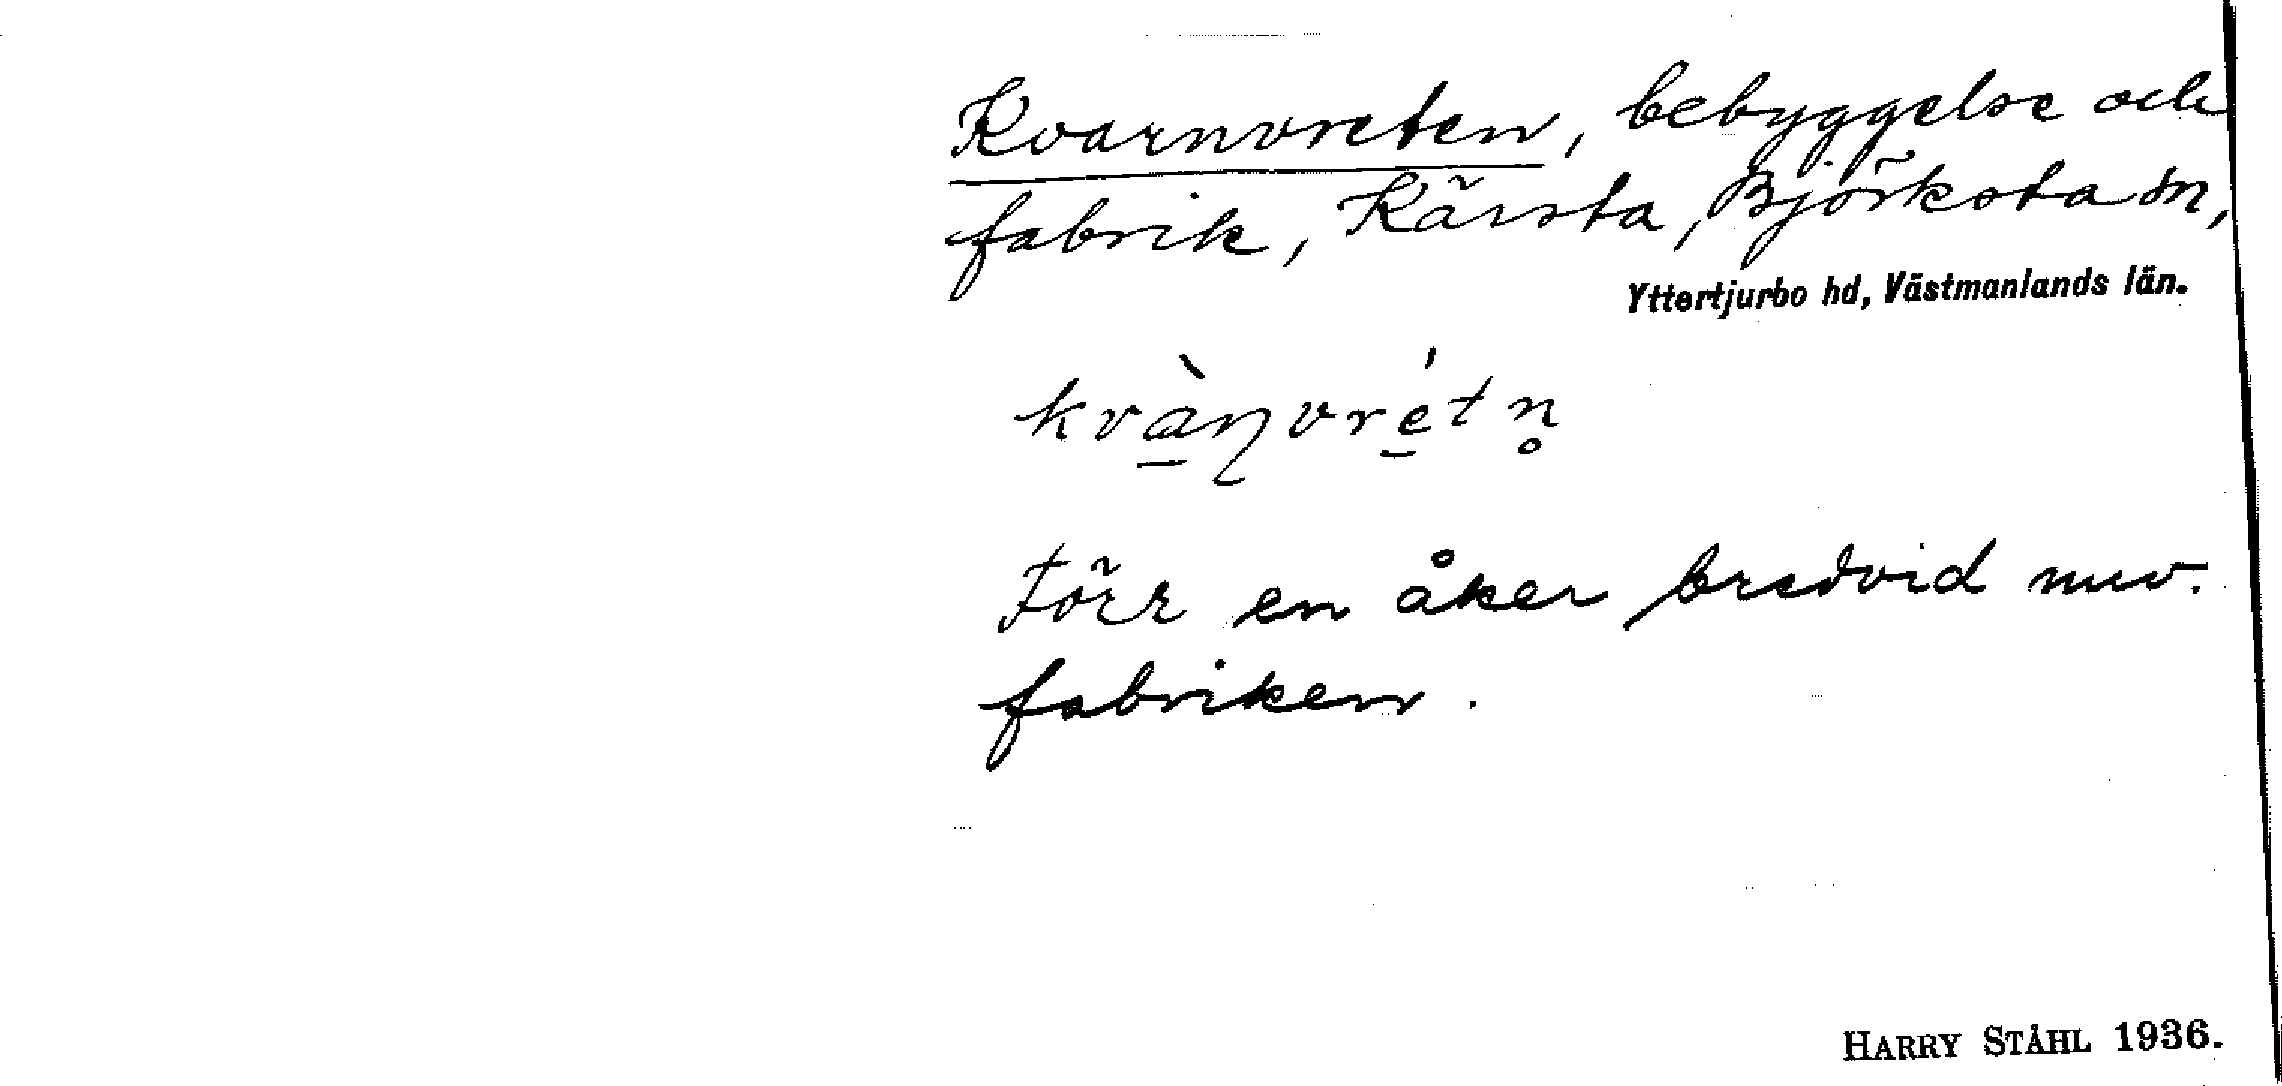 Kvarnvreten, bebyggelse och
fabrik, Kärsta, Björksta sn,
Yttertjurbo hd, Västmanlands län.
kvà̱ɳvré̱tn̥
Förr en åker bredvid nuv.
fabriken.
HARRY STÅHL 1936.